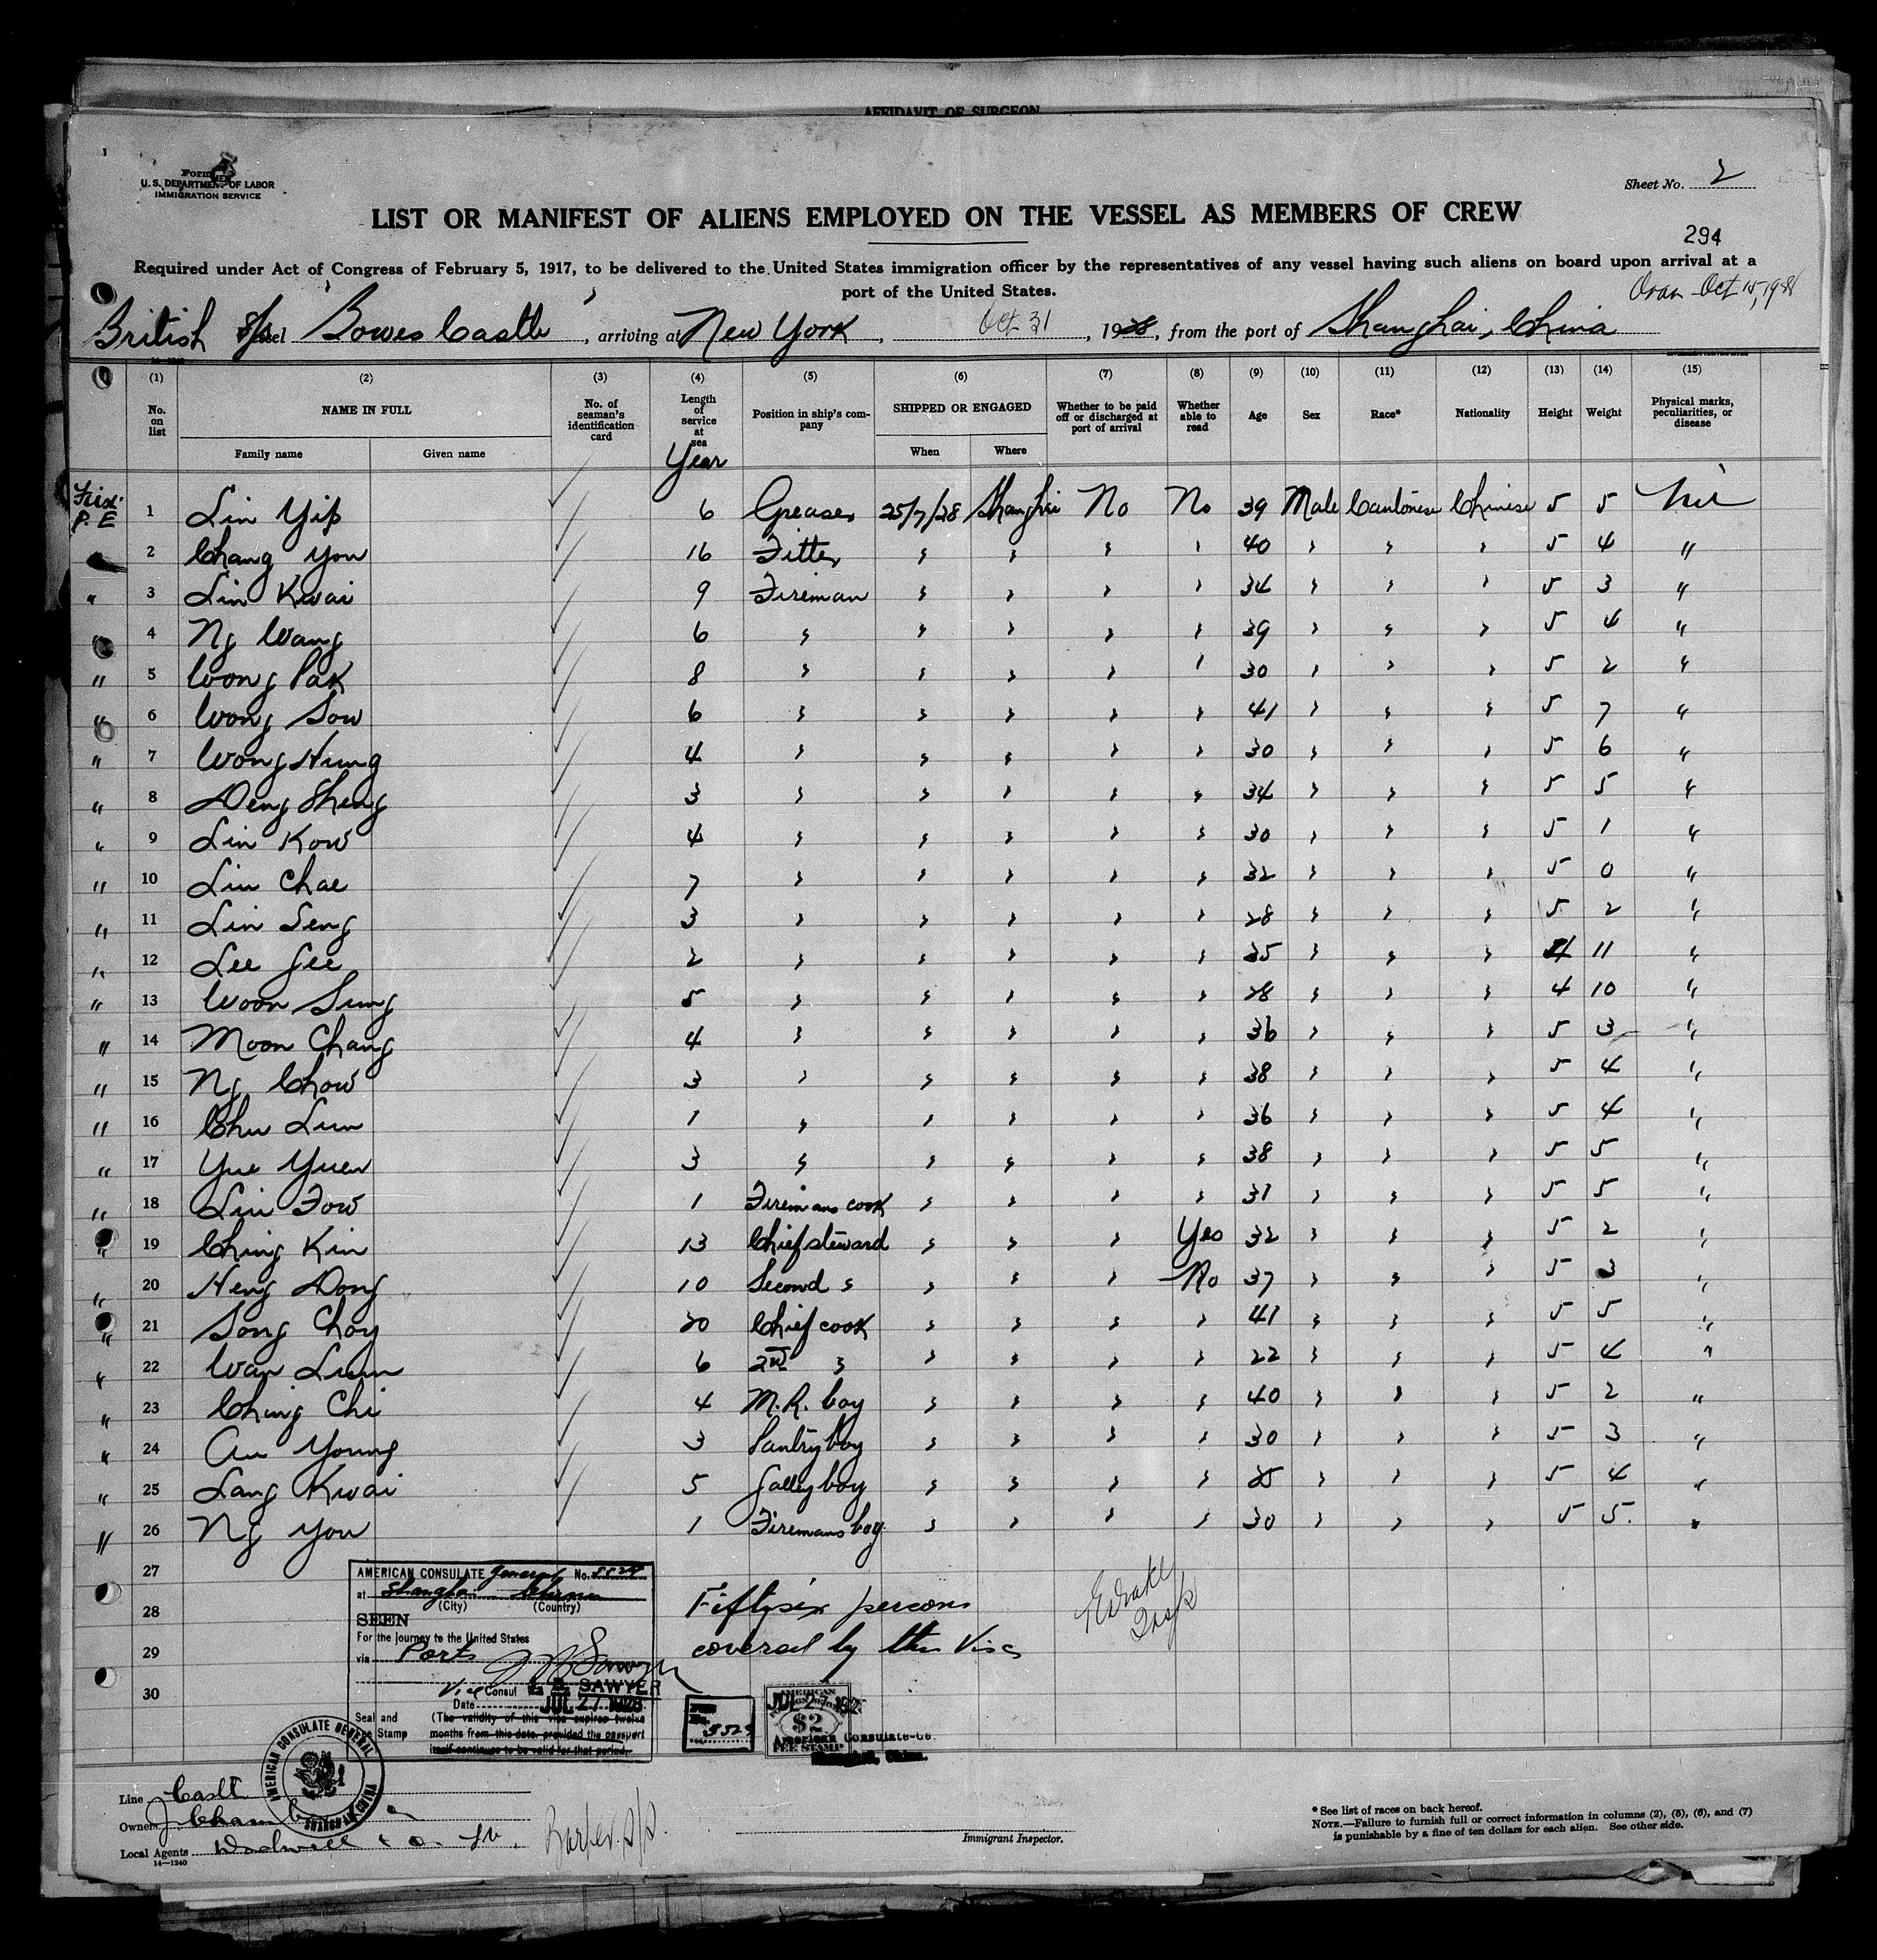 AFFIDAVIT OF SURGEON
Form
U. S. DEPARTMENT OF LABOR
IMMIGRATION SERVICE
Sheet No. 2
LIST OR MANIFEST OF ALIENS EMPLOYED ON THE VESSEL AS MEMBERS OF CREW
294
Required under Act of Congress of February 5, 1917, to be delivered to the United States immigration officer by the representatives of any vessel having such aliens on board upon arrival at a
port of the United States.
Oran Oct 15, 1928
British S/S Bowes Castle, arriving at New York, Oct 31, 1928, from the port of Shanghai, China
(1) (2) (3) (4) (5) (6) (7) (8) (9) (10) (11) (12) (13) (14) (15)
No. on list NAME IN FULL Family name Given name No. of seaman's identification card Length of service at sea Year Position in ship's company SHIPPED OR ENGAGED When Where Whether to be paid off or discharged at port of arrival Whether able to read Age Sex Race* Nationality Height Weight Physical marks, peculiarities, or disease
P. E 1 Lin Yip 6 Greaser 25/7/28 Shanghai No No 39 Male Cantonese Chinese 5 5 Nil
2 Chang You 16 Fitter " " " " 40 " " " 5 4 "
" 3 Lin Kwai 9 Fireman " " " " 34 " " " 5 3 "
" 4 Ng Wang 6 " " " " " 39 " " " 5 4 "
" 5 Wong Pak 8 " " " " " 30 " " " 5 2 "
" 6 Wong Sow 6 " " " " " 41 " " " 5 7 "
" 7 Wong Hung 4 " " " " " 30 " " " 5 6 "
" 8 Deng Sheng 3 " " " " " 34 " " " 5 5 "
" 9 Lin Kow 4 " " " " " 30 " " " 5 1 "
" 10 Lin Chae 7 " " " " " 32 " " " 5 0 "
" 11 Lin Seng 3 " " " " " 28 " " " 5 2 "
" 12 Lee Gee 2 " " " " " 35 " " " 4 11 "
" 13 Woon Sung 5 " " " " " 28 " " " 4 10 "
" 14 Moon Chang 4 " " " " " 36 " " " 5 3 "
" 15 Ng Chow 3 " " " " " 38 " " " 5 4 "
" 16 Chu Lun 1 " " " " " 36 " " " 5 4 "
" 17 Yue Yuen 3 " " " " " 38 " " " 5 5 "
" 18 Lin Fow 1 Firemans cook " " " " 31 " " " 5 5 "
" 19 Ching Kin 13 Chief steward " " " Yes 32 " " " 5 2 "
" 20 Heng Dong 10 Second " " " " No 37 " " " 5 3 "
" 21 Song Choy 20 Chief cook " " " " 41 " " " 5 5 "
" 22 Wan Lum 6 2nd " " " " " 22 " " " 5 4 "
" 23 Ching Chi 4 M.R. boy " " " " 40 " " " 5 2 "
" 24 Au Young 3 Pantry boy " " " " 30 " " " 5 3 "
" 25 Lang Kwai 5 Galley boy " " " " 25 " " " 5 4 "
" 26 Ng You 1 Firemans boy " " " " 30 " " " 5 5 "
27
28
29
30
AMERICAN CONSULATE General No. 5529
at Shanghai China
(City) (Country)
SEEN
For the journey to the United States
via Ports
Vice Consul SAWYER
Date JUL 27 1928
Seal and Fee Stamp (The validity of this visa expires twelve
months from this date, provided the passport
itself continues to be valid for that period.
AMERICAN CONSULATE GENERAL
SHANGHAI, CHINA
Fiftysix persons
covered by this Visa
5529
JUL 27 1928
AMERICAN
$2
FEE STAMP
American Consulate-Ge
China.
Line Castle
Owners J Cham
Local Agents Dodwell & Co. Ld.
14—1240
Barber S/S
Immigrant Inspector.
*See list of races on back hereof.
NOTE.—Failure to furnish full or correct information in columns (2), (5), (6), and (7)
is punishable by a fine of ten dollars for each alien. See other side.